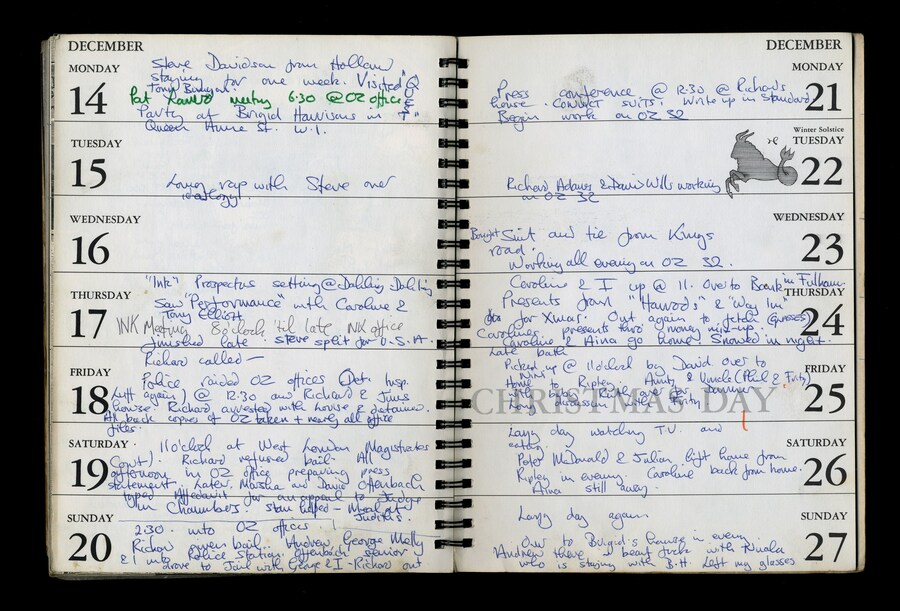 DECEMBER
MONDAY
14
Steve Davidson from Holland
staying for one week. Visited
Tony Bunyan.
meeting 6.30 @ OZ office
Party at Brigid Harrisons in
Queen Anne St. W.1.
TUESDAY
15
Long rap with Steve over
ideology.
WEDNESDAY
16
"Ink" Prospectus setting @ Dahling Dahling
THURSDAY
17
Saw "Performance" with Caroline &
Tony Elliott
INK Meeting 8 o'clock 'til late INK office
finished late. Steve split for U.S.A.
Richard called —
FRIDAY
18
Police raided OZ offices (Det. Insp.
Luff again) @ 12.30 and Richard & Jims
house. Richard arrested with Louise & detained.
All back copies of OZ taken + nearly all office
files.
SATURDAY
19
11 o'clock at West London Magistrates
Court). Richard refused bail. All
afternoon in OZ office preparing press
statement. Later Marsha and David Offenbach
typed Affedavit for an appeal to Judge
in Chambers. Stan helped - Meal at
Judith's.
SUNDAY
20
2.30. into OZ offices
Richard given bail. Andrew, George Melly
& I
Police Station. Offenbach senior
drove to Jail with George & I - Richard out
DECEMBER
MONDAY
21
Press conference @ 12.30 @ Richard's
house. Convict suits. Write up in Standard
Begin work on OZ 32
Winter Solstice
TUESDAY
22
Richard Adams & David Wills working
on OZ 32
WEDNESDAY
23
Bought Suit and tie from Kings
road.
Working all evening on OZ 32.
THURSDAY
24
Caroline & I up @ 11. Over to Bank in Fulham
Presents from "Harrods" & "Way In"
for Xmas. Out again to fetch
Carolines presents thro' money mix-up.
Caroline & Aina go home. Snowed in night.
Late bath
FRIDAY
25
CHRISTMAS DAY
Picked up @ 11 o'clock by David over to
Home to Ripley. Aunty & Uncle (Phil & Fritz)
Long discussion with Fritz
SATURDAY
26
Lazy day watching T.V. and
eating.
Peter McDonald & Julian lift home from
Ripley in evening. Caroline back from home.
Aina still away.
SUNDAY
27
Lazy day again
Over to Brigid's house in evening.
Andrew there. I beat with Nuala
who is staying with B.H. Left my glasses